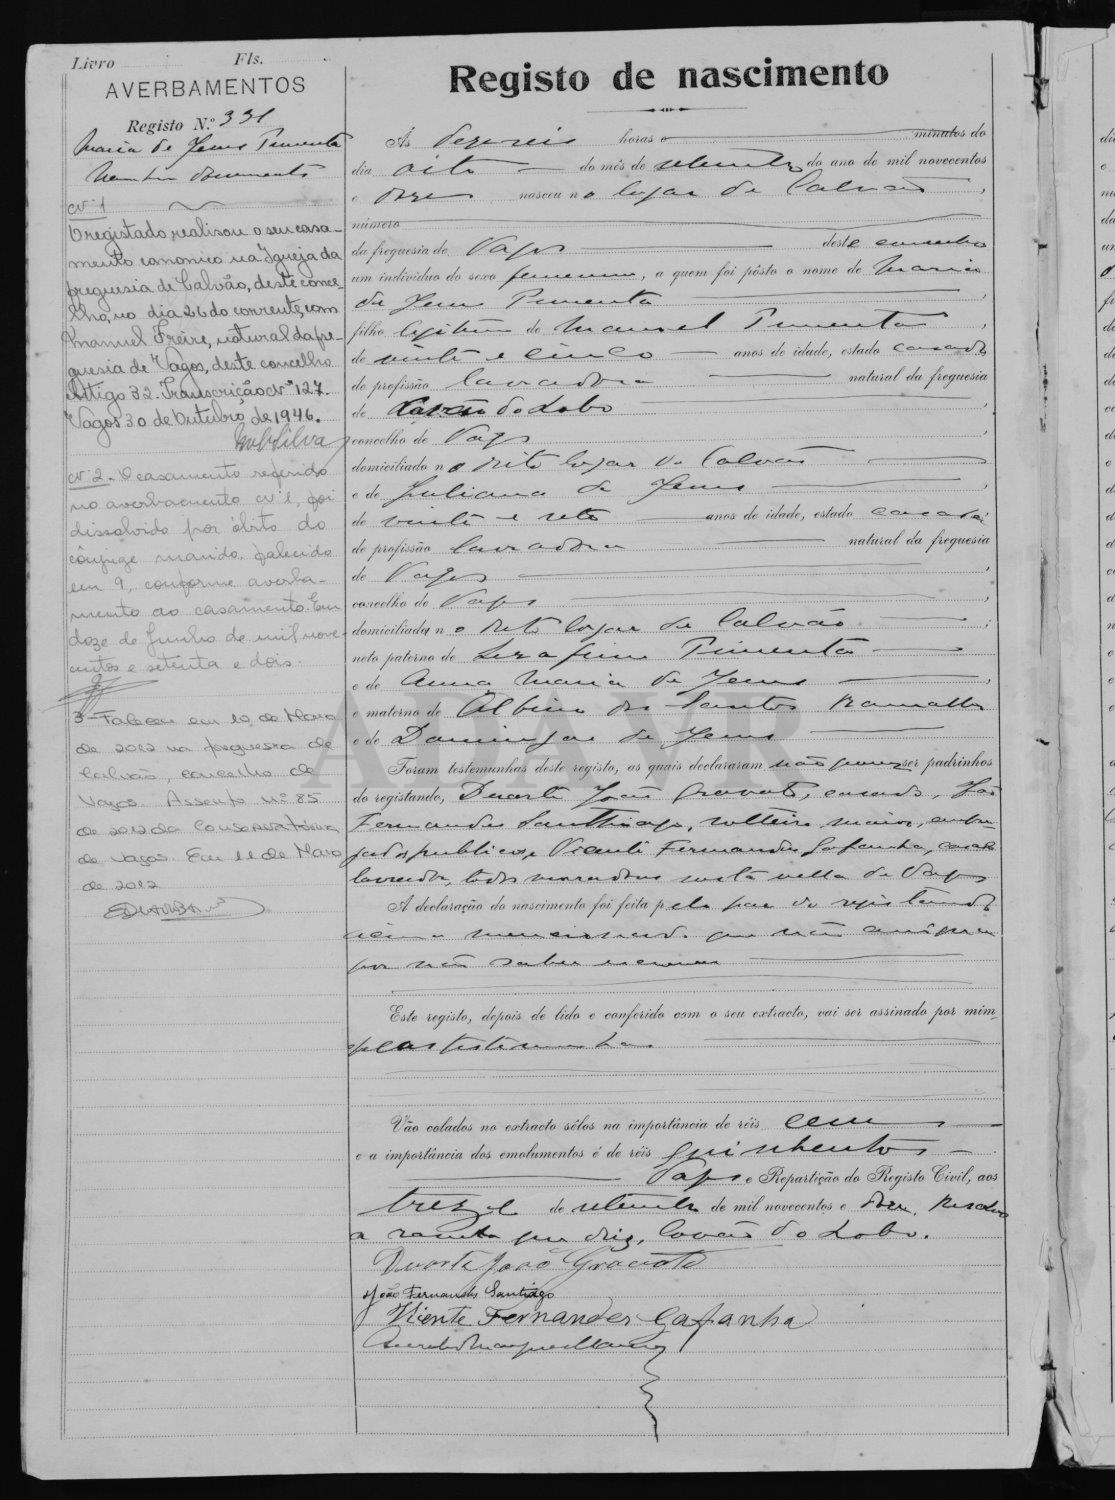 Livro Fls.
AVERBAMENTOS
Registo N.º 331
Maria de Jesus Pimenta
Nenhum documento
Nº 1
O registado realisou o seu casa-
mento canonico na Igreja da
freguesia de Calvão, deste conce-
lho, no dia 26 do corrente, com
Manuel Freire, natural da fre-
guesia de Vagos, deste concelho.
Artigo 32. Transcrição Nº 127.
Vagos 30 de Outubro de 1946.
Nº 2. O casamento referido
no averbamento nº 1, foi
dissolvido por óbito do
cônjuge marido, falecido
em 9, conforme averba-
mento ao casamento. Em
doze de Junho de mil nove-
centos e setenta e dois.
3- Faleceu em 10 de Maio
de 2012 na freguesia de
Calvão, concelho de
Vagos. Assento nº 85
de 2012 da Conservatória
de Vagos. Em 11 de Maio
de 2012
Registo de nascimento
Às dezaseis horas e minutos do
dia oito do mês de setembro do ano de mil novecentos
e doze nasceu no lugar de Calvão,
número
da freguesia de Vagos deste concelho
um indivíduo do sexo femenino, a quem foi pôsto o nome de Maria
de Jesus Pimenta,
filho legitimo de Manuel Pimenta,
de vinte e cinco anos de idade, estado casado,
de profissão lavradora natural da freguesia
de Covão do Lobo,
concelho de Vagos,
domiciliado no dito lugar de Calvão,
e de Juliana de Jesus,
de vinte e sete anos de idade, estado casada,
de profissão lavradora natural da freguesia
de Vagos,
concelho de Vagos,
domiciliada no dito lugar de Calvão;
neto paterno de Serafim Pimenta
e de Anna Maria de Jesus,
e materno de Albino dos Santos Ramalho
e de Domingas de Jesus
Foram testemunhas deste registo, as quais declararam não ser padrinhos
do registando, Duarte João Gravato, casado, João
Fernandes Santhiago, solteiro, maior, empre-
gados publicos, e Vicente Fernandes Gafanha, casado
lavrador, todos moradores nesta villa de Vagos
A declaração do nascimento foi feita pelo pae do registando
acima mencionado que não assigna
por não saber escrever
Este registo, depois de lido e conferido com o seu extracto, vai ser assinado por mim,
e pelas testemunhas
Vão colados no extracto sêlos na importância de réis cem
e a importância dos emolumentos é de réis quinhentos
Vagos e Repartição do Registo Civil, aos
treze de setembro de mil novecentos e doze. Resalvo
a rasura que diz, Covão do Lobo.
Duarte João Gravato
João Fernandes Santiago
Vicente Fernandes Gafanha
ADAVR